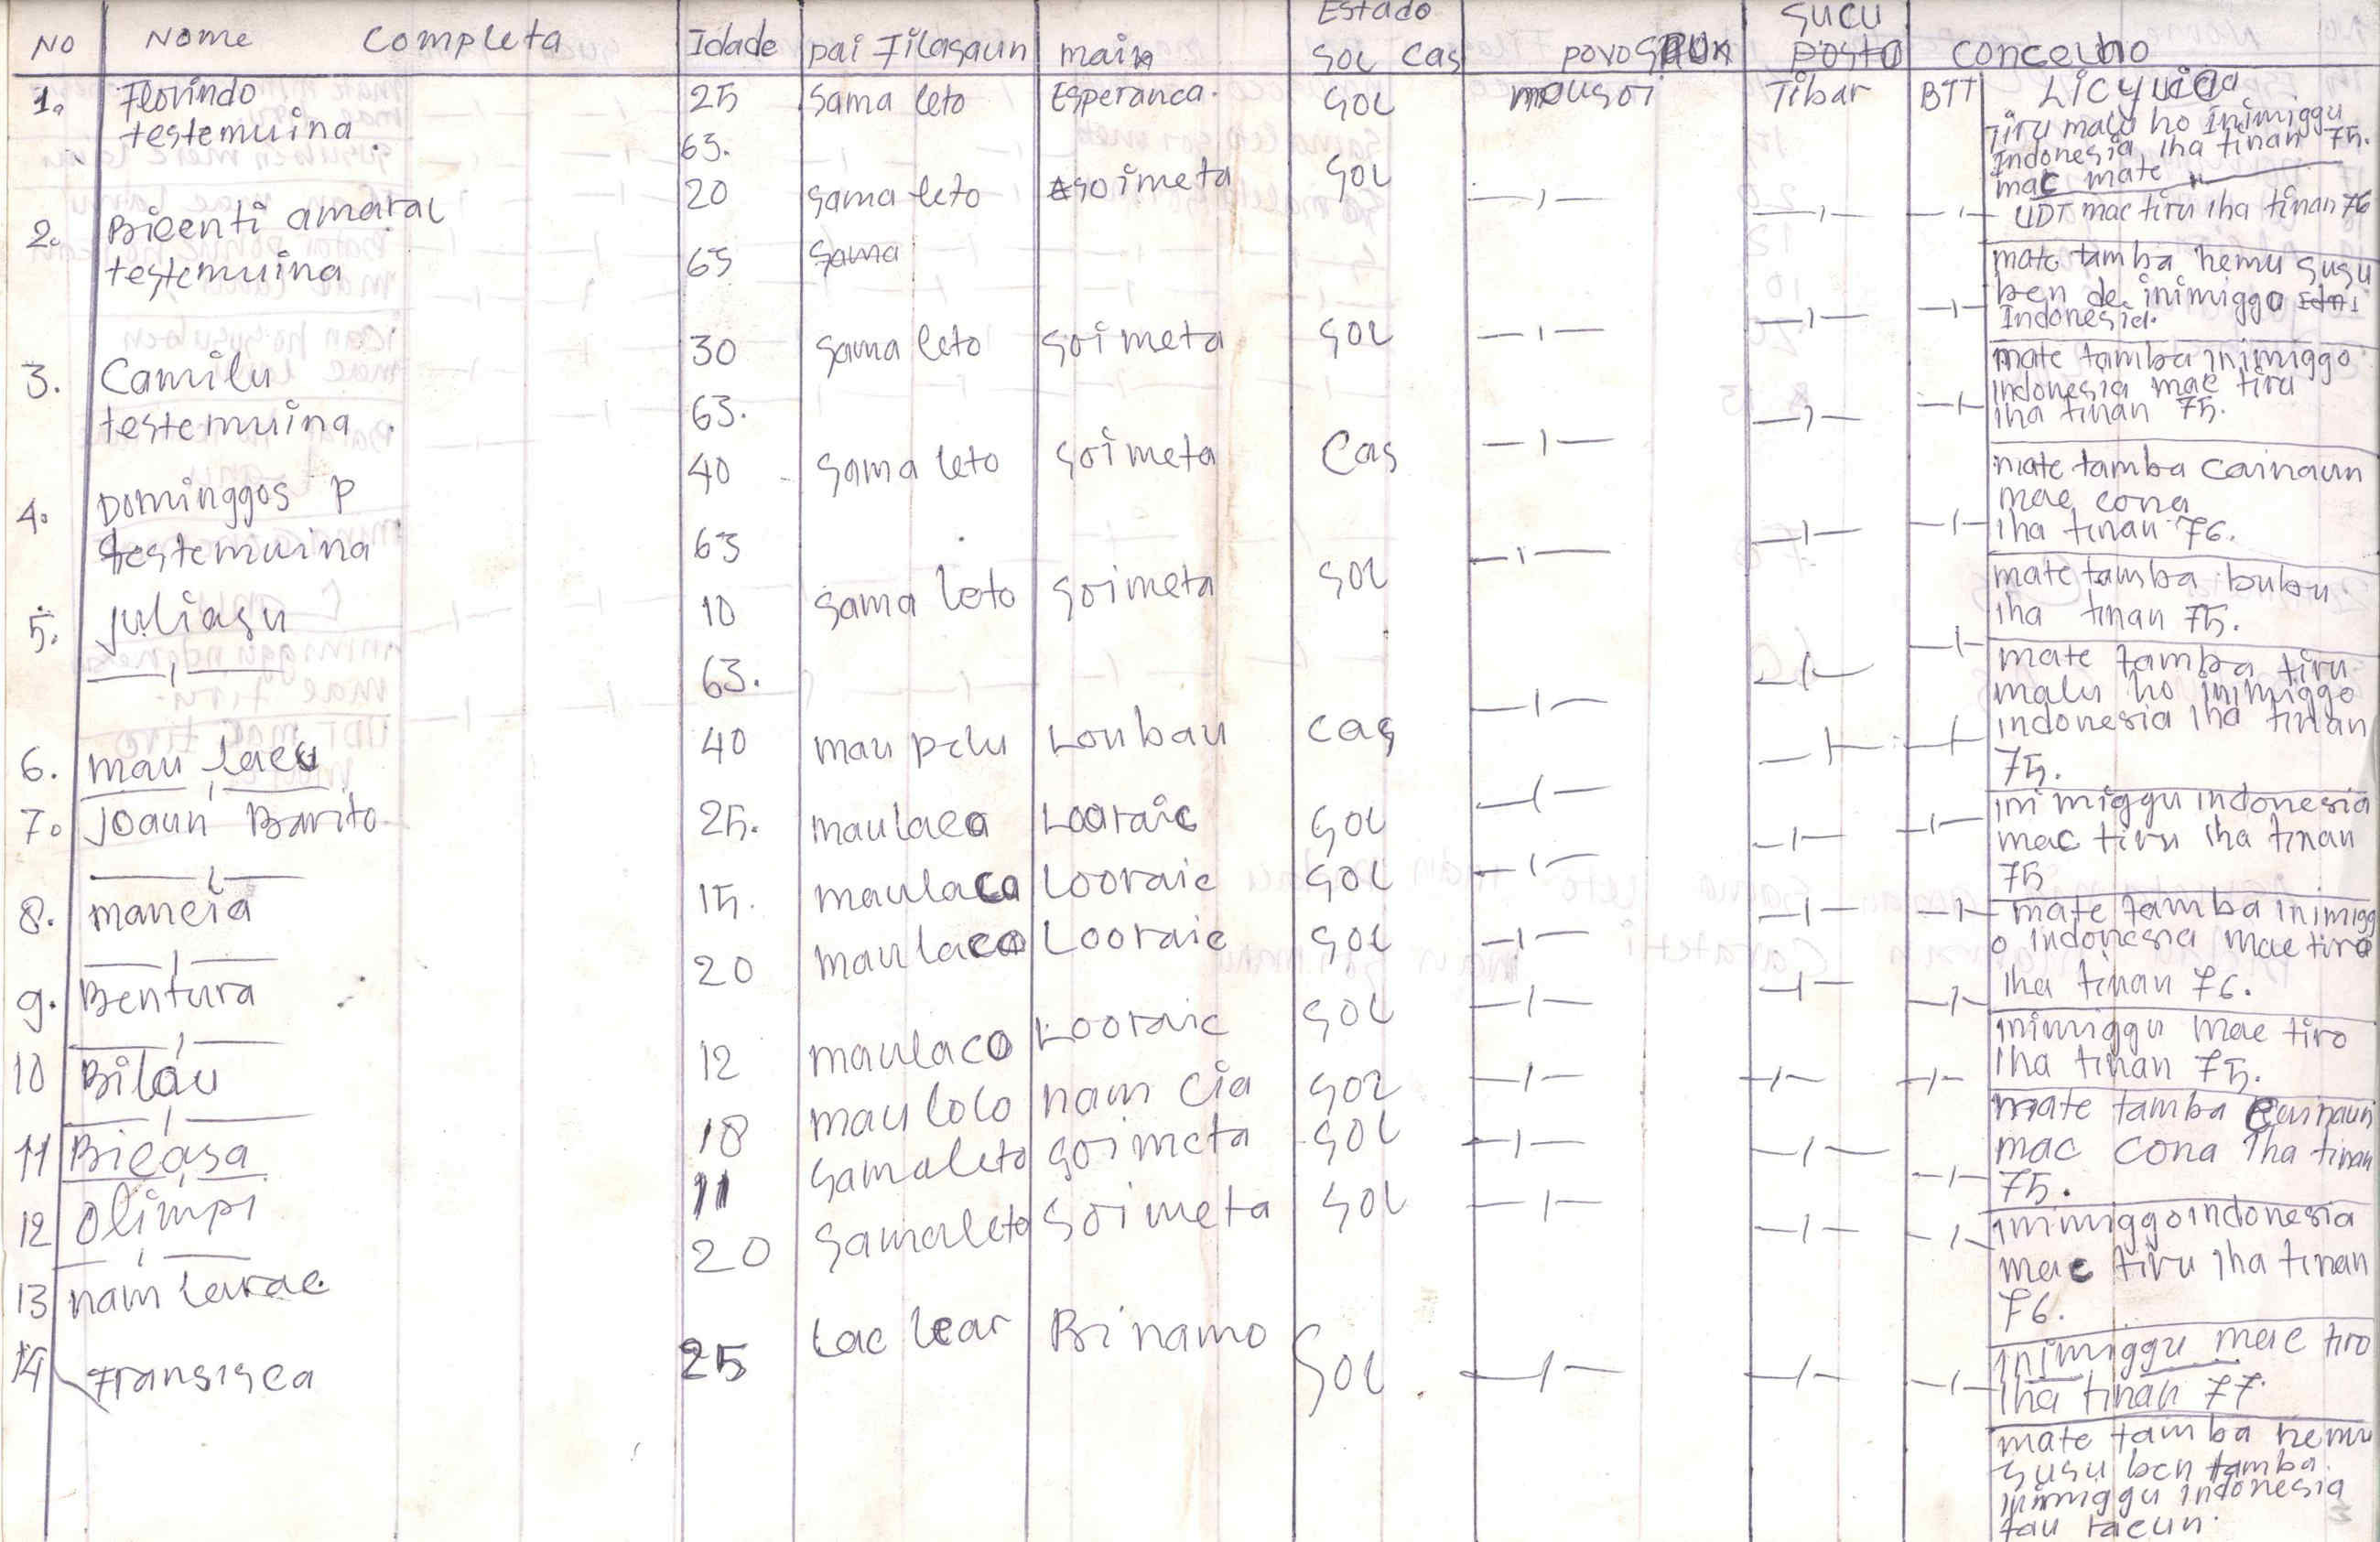 NO Nome Completa Idade pai Filasaun main Estado SOL Cas povosaun sucu posto Concelho
1. Florindo 25 Sama leto Esperanca. SOL mousoi Tibar BTT Licyuica
testemuina 63.
Tiru malu ho Inimiggu
Indonesia iha tinan 75.
mac mate
2. Bicenti amaral 20 Sama leto soimeta SOL —,— —,— —,— UDT mac tiru iha tinan 76
testemuina 65 Sama
mate tamba hemu susu
ben de inimiggo
Indonesia.
3. Camilu 30 Sama leto Soimeta SOL —,— —,— —,—
testemuina. 63.
mate tamba inimiggo
indonesia mac tiru
iha tinan 75.
4. Dominggos P 40 Sama leto Soimeta Cas —,— —,— —,—
testemuina 63
mate tamba cainaun
mac cona
iha tinan 76.
5. Juliasu 10 Sama leto Soimeta SOL —,— —,— —,—
—,— 63.
mate tamba bubu
iha tinan 75.
6. mau laeu 40 mau pelu Loubau Cas —,— —,— —,—
—,—
mate tamba tiru
malu ho inimiggo
indonesia iha tinan
75.
7. Joaun Barito 25. maulaco Looraic SOL —,— —,— —,—
—,—
inimiggu indonesia
mac tiru iha tinan
75
8. mancia 15. maulaco Looraic SOL —,— —,— —,—
—,—
mate tamba inimigg
o indonesia mac tiro
iha tinan 76.
9. Bentura 20 maulaco Looraic SOL —,— —,— —,—
—,—
inimiggu mac tiro
iha tinan 75.
10 Bilau 12 maulaco Looraic SOL —,— —,— —,—
—,—
mate tamba cainaun
mac cona iha tinan
75.
11 Bicasa 18 mau lolo nam cia SOL —,— —,— —,—
—,—
inimiggo indonesia
mac tiru iha tinan
76.
12 Olimpi 11 Samaleto soimeta SOL —,— —,— —,—
—,—
inimiggu mac tiro
iha tinan 77.
13 nam larac 20 Samaleto Soimeta SOL —,— —,— —,—
14 Fransisca 25 Lac lear Bi namo SOL —,— —,— —,—
mate tamba hemu
susu ben tamba
inimiggu indonesia
tau racun.